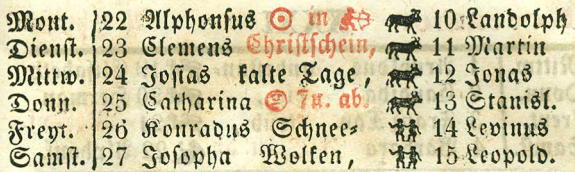 Mont. 22 Alphonsus ☉ in ♐ 10 Landolph
Dienst. 23 Clemens Christschein, 11 Martin
Mittw. 24 Josias kalte Tage, 12 Jonas
Donn. 25 Catharina 7u. ab. 13 Stanisl.
Freyt. 26 Konradus Schnee- 14 Levinus
Samst. 27 Josopha Wolken, 15 Leopold.